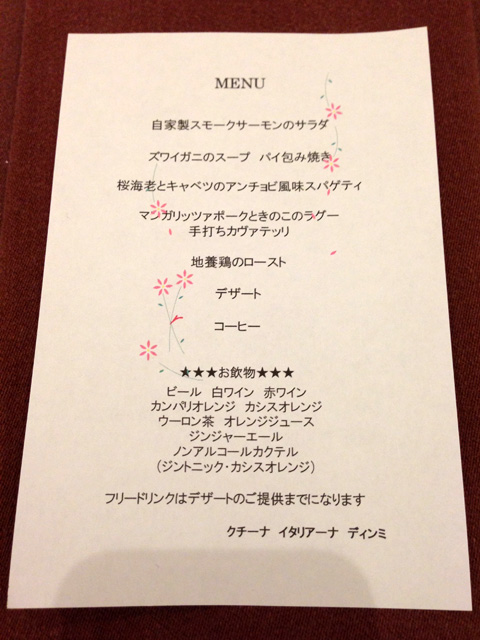 MENU
自家製スモークサーモンのサラダ
ズワイガニのスープ パイ包み焼き
桜海老とキャベツのアンチョビ風味スパゲティ
マンガリッツァポークときのこのラグー
手打ちカヴァテッリ
地養鶏のロースト
デザート
コーヒー
★★★お飲物★★★
ビール 白ワイン 赤ワイン
カンパリオレンジ カシスオレンジ
ウーロン茶 オレンジジュース
ジンジャーエール
ノンアルコールカクテル
（ジントニック・カシスオレンジ）
フリードリンクはデザートのご提供までになります
クチーナ イタリアーナ ディンミ